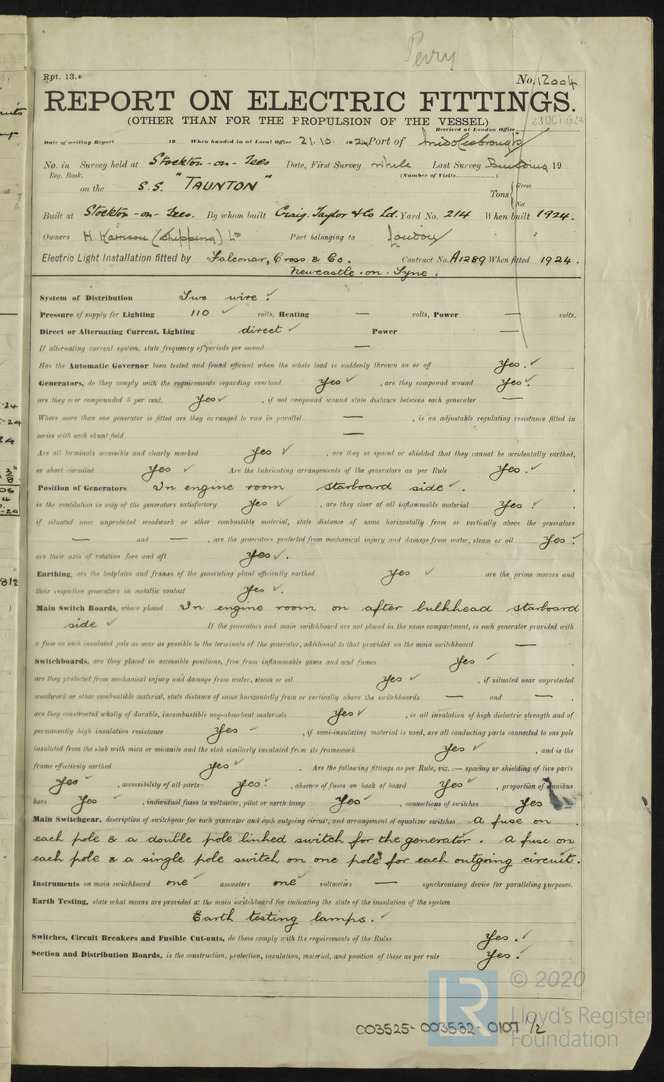 Perry
Rpt. 13. No. 12004
REPORT ON ELECTRIC FITTINGS.
(OTHER THAN FOR THE PROPULSION OF THE VESSEL)
Received at London Office
23 OCT 1924
Date of writing Report 19 When handed in at Local Office 21.10.1924 Port of Middlesbrough
No. in Survey held at Stockton-on-Tees Date, First Survey while Last Survey Building 19
Reg. Book. (Number of Visits)
on the S.S. "TAUNTON" Tons { Gross Net
Built at Stockton-on-Tees. By whom built Craig, Taylor & Co Ld. Yard No. 214 When built 1924.
Owners H. Harrison (Shipping) Ld Port belonging to London
Electric Light Installation fitted by Falconar, Cross & Co. Contract No. A1289 When fitted 1924.
Newcastle-on-Tyne.
System of Distribution Two wire.
Pressure of supply for Lighting 110 volts, Heating — volts, Power — volts.
Direct or Alternating Current, Lighting direct Power —
If alternating current system, state frequency of periods per second —
Has the Automatic Governor been tested and found efficient when the whole load is suddenly thrown on or off Yes.
Generators, do they comply with the requirements regarding overload Yes, are they compound wound Yes.
are they over compounded 5 per cent. Yes, if not compound wound state distance between each generator —
Where more than one generator is fitted are they arranged to run in parallel —, is an adjustable regulating resistance fitted in
series with each shunt field —
Are all terminals accessible and clearly marked Yes, are they so spaced or shielded that they cannot be accidentally earthed,
or short circuited Yes Are the lubricating arrangements of the generators as per Rule Yes.
Position of Generators In engine room starboard side.
is the ventilation in way of the generators satisfactory Yes, are they clear of all inflammable material Yes.
if situated near unprotected woodwork or other combustible material, state distance of same horizontally from or vertically above the generators
— and —, are the generators protected from mechanical injury and damage from water, steam or oil Yes.
are their axis of rotation fore and aft Yes.
Earthing, are the bedplates and frames of the generating plant efficiently earthed Yes are the prime movers and
their respective generators in metallic contact Yes.
Main Switch Boards, where placed In engine room on after bulkhead starboard
side If the generators and main switchboard are not placed in the same compartment, is each generator provided with
a fuse on each insulated pole as near as possible to the terminals of the generator, additional to that provided on the main switchboard —
Switchboards, are they placed in accessible positions, free from inflammable gases and acid fumes Yes
are they protected from mechanical injury and damage from water, steam or oil Yes, if situated near unprotected
woodwork or other combustible material, state distance of same horizontally from or vertically above the switchboards — and —
are they constructed wholly of durable, incombustible non-absorbent materials Yes, is all insulation of high dielectric strength and of
permanently high insulation resistance Yes, if semi-insulating material is used, are all conducting parts connected to one pole
insulated from the slab with mica or micanite and the slab similarly insulated from its framework Yes, and is the
frame effectively earthed Yes. Are the following fittings as per Rule, viz.:— spacing or shielding of live parts
Yes, accessibility of all parts Yes, absence of fuses on back of board Yes, proportion of omnibus
bars Yes, individual fuses to voltmeter, pilot or earth lamp Yes, connections of switches Yes
Main Switchgear, description of switchgear for each generator and each outgoing circuit, and arrangement of equalizer switches A fuse on
each pole & a double pole linked switch for the generator. A fuse on
each pole & a single pole switch on one pole for each outgoing circuit.
Instruments on main switchboard one ammeters one voltmeters — synchronising device for paralleling purposes.
Earth Testing, state what means are provided at the main switchboard for indicating the state of the insulation of the system
Earth testing lamps.
Switches, Circuit Breakers and Fusible Cut-outs, do these comply with the requirements of the Rules Yes.
Section and Distribution Boards, is the construction, protection, insulation, material, and position of these as per rule Yes.
003525-003532-0107 1/2
LR © 2020
Lloyd's Register
Foundation